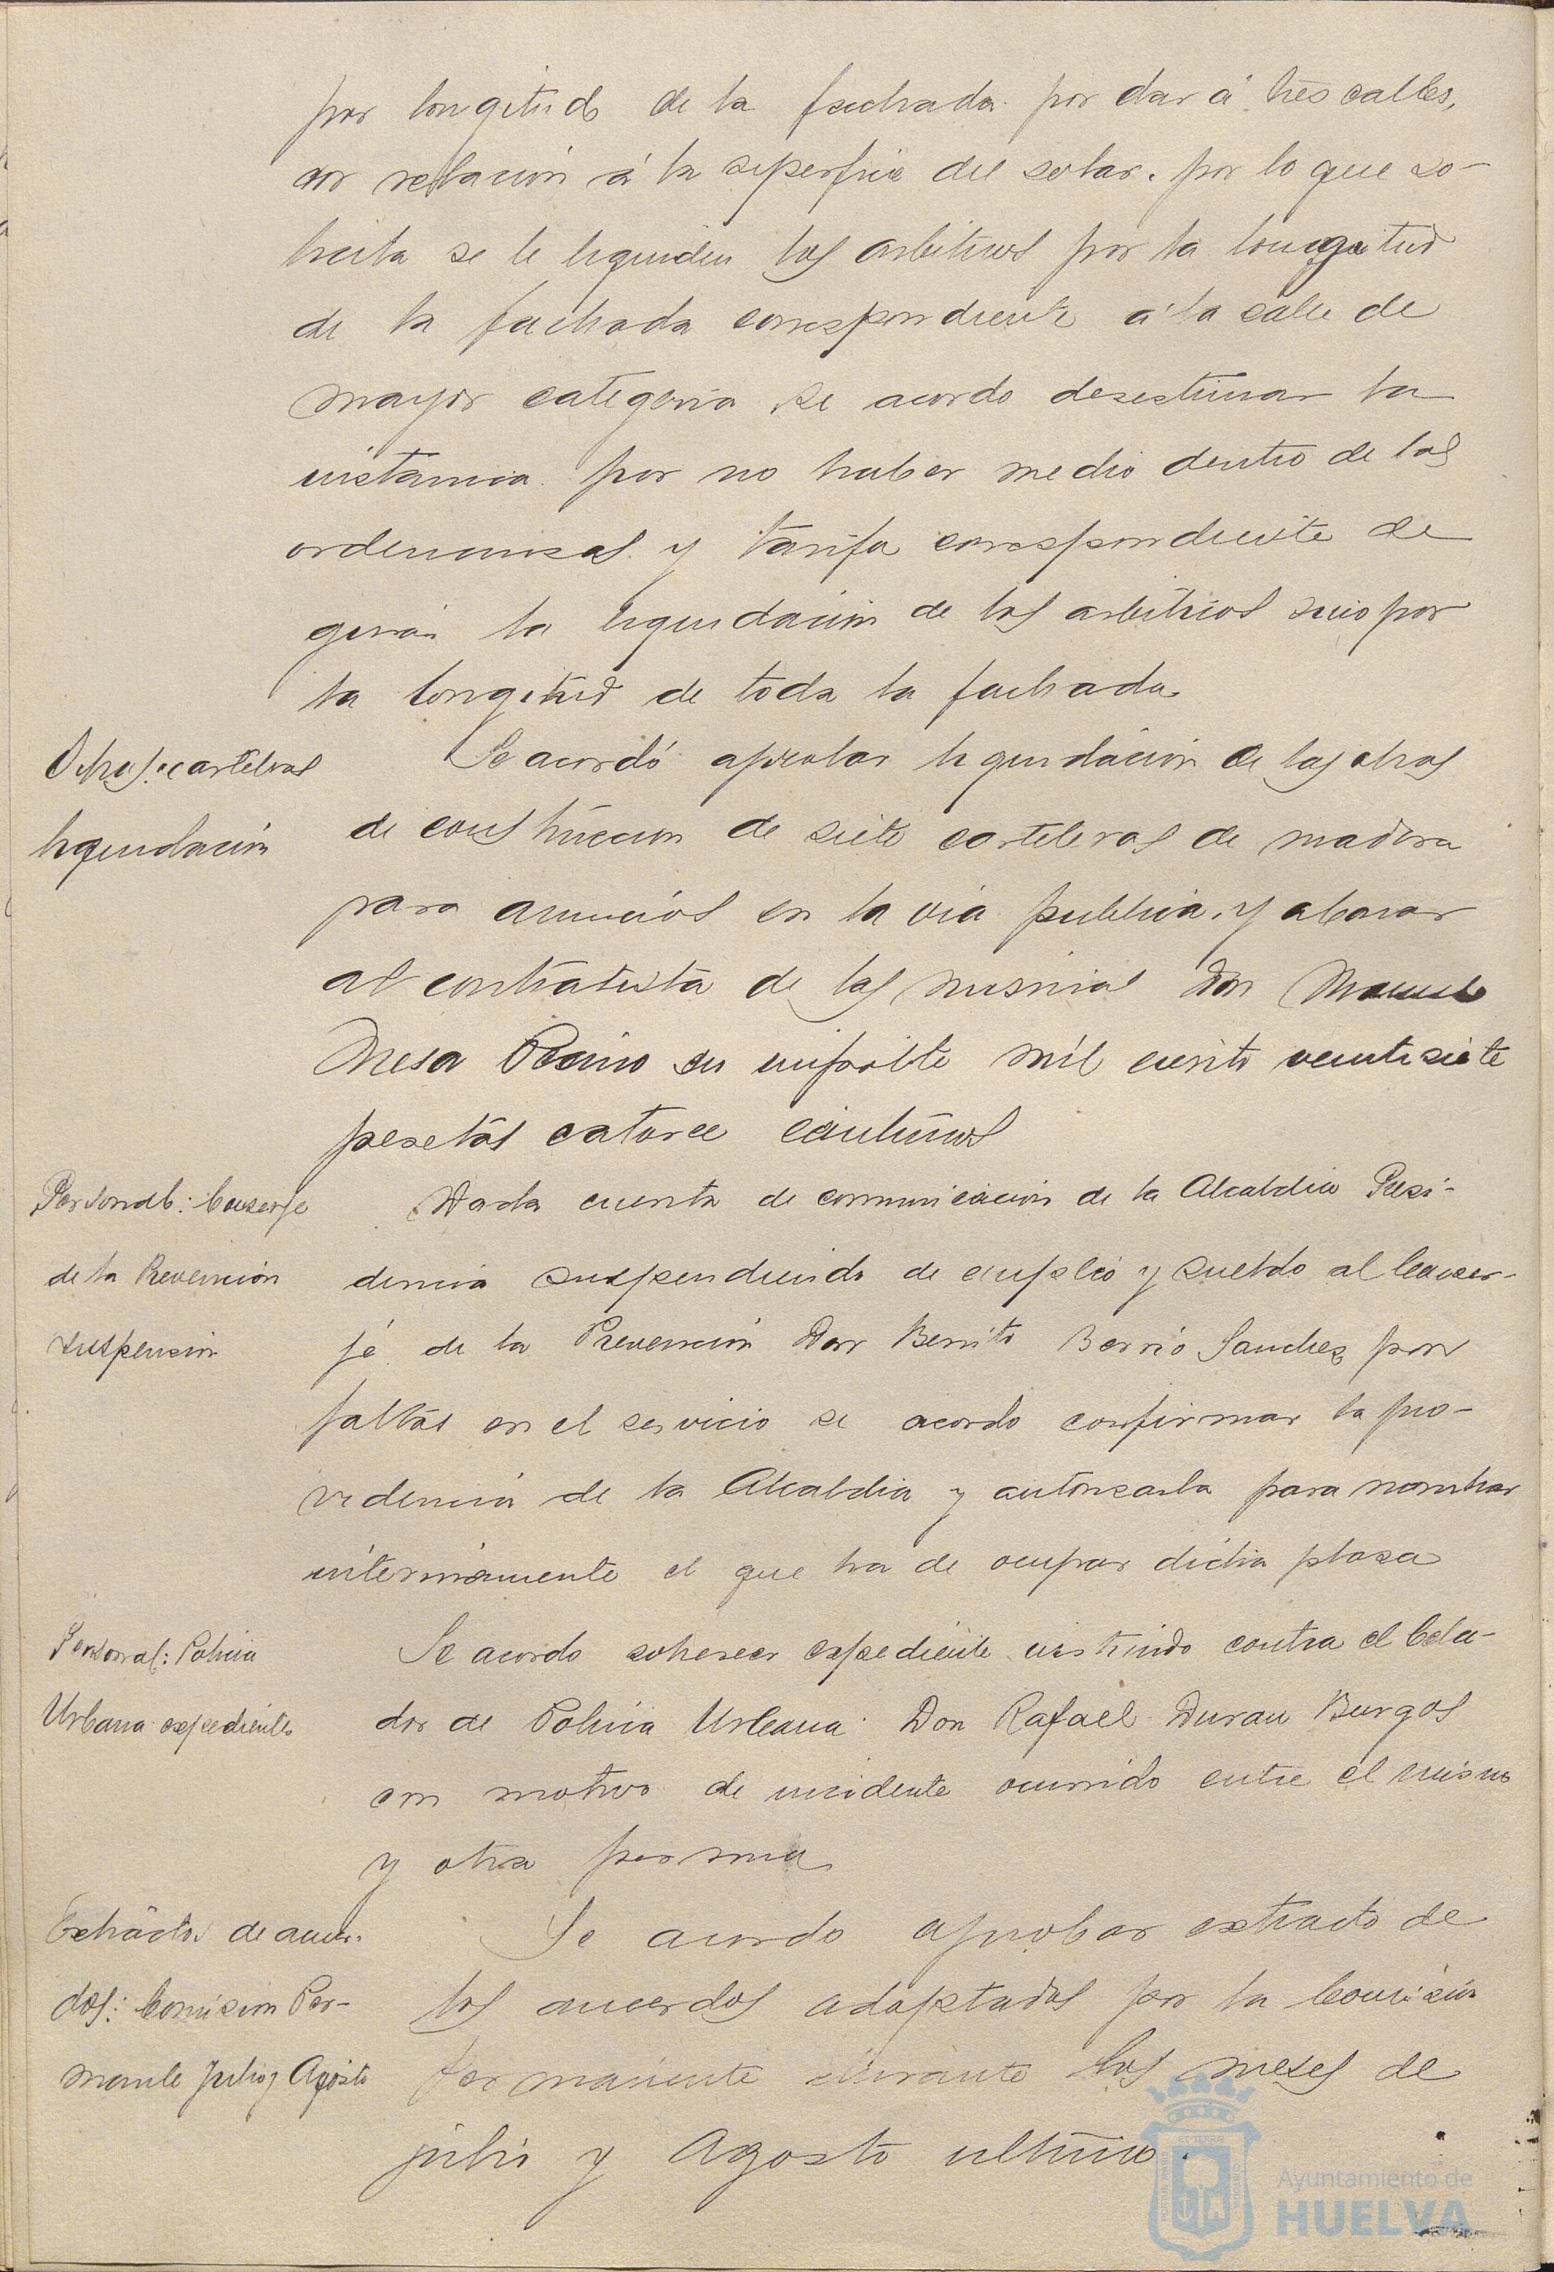 por longitud de la fachada por dar á tres calles,
con relación á la superficie del solar. por lo que so-
licita se le liquiden los arbitrios por la longitud
de la fachada correspondiente á la calle de
mayor categoria se acordo desestimar la
instancia por no haber medio dentro de las
ordenanzas y tarifa correspondiente de
girar la liquidación de los arbitrios sino por
la longitud de toda la fachada
Obras: carteleras
liquidación
Se acordó aprobar liquidación de las obras
de construccion de siete carteleras de madera
para anuncios en la via publica, y abonar
al contratista de las mismas Don Manuel
Mesa su importe mil ciento veintisiete
pesetas catorce céntimos
Personal: Conserje
de la Prevención
suspensión
Dada cuenta de comunicación de la Alcaldia Presi-
dencia suspendiendo de empleo y sueldo al Conser-
je de la Prevención Don Benito Berrio Sanchez por
faltas en el servicio se acordo confirmar la pro-
videncia de la Alcaldia y autorizarla para nombrar
interinamente el que ha de ocupar dicha plaza
Personal: Policia
Urbana expediente
Se acordo sobreseer expediente instruido contra el Cela-
dor de Policia Urbana Don Rafael Duran Burgos
con motivo de incidente ocurrido entre el mismo
y otra persona
Extractos de acuer-
dos: Comision Per-
manente Julio y Agosto
Se acordo aprobar extracto de
los acuerdos adoptados por la Comisión
Permanente durante los meses de
julio y Agosto ultimo.
Ayuntamiento de
HUELVA